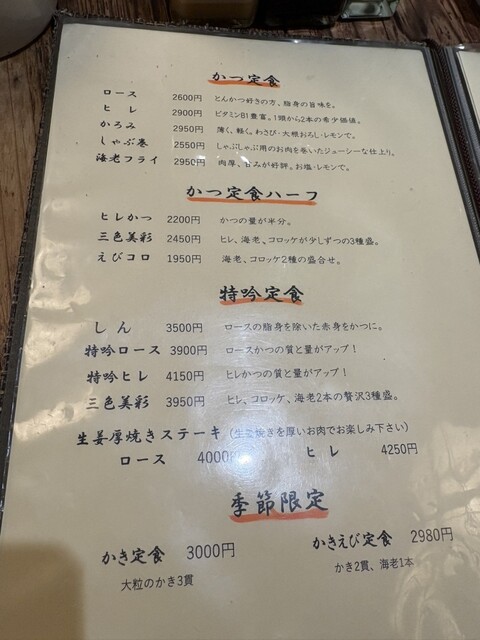 かつ定食
ロース 2600円 とんかつ好きの方、脂身の旨味を。
ヒレ 2900円 ビタミンB1豊富。1頭から2本の希少価値。
かろみ 2950円 薄く、軽く。わさび・大根おろし・レモンで。
しゃぶ巻 2550円 しゃぶしゃぶ用のお肉を巻いたジューシーな仕上り。
海老フライ 2950円 肉厚、甘みが好評。お塩・レモンで。
かつ定食ハーフ
ヒレかつ 2200円 かつの量が半分。
三色美彩 2450円 ヒレ、海老、コロッケが少しずつの3種盛。
えびコロ 1950円 海老、コロッケ2種の盛合せ。
特吟定食
しん 3500円 ロースの脂身を除いた赤身をかつに。
特吟ロース 3900円 ロースかつの質と量がアップ！
特吟ヒレ 4150円 ヒレかつの質と量がアップ！
三色美彩 3950円 ヒレ、コロッケ、海老2本の贅沢3種盛。
生姜厚焼きステーキ（生姜焼きを厚いお肉でお楽しみ下さい）
ロース 4000円 ヒレ 4250円
季節限定
かき定食 3000円 かきえび定食 2980円
大粒のかき3貫 かき2貫、海老1本